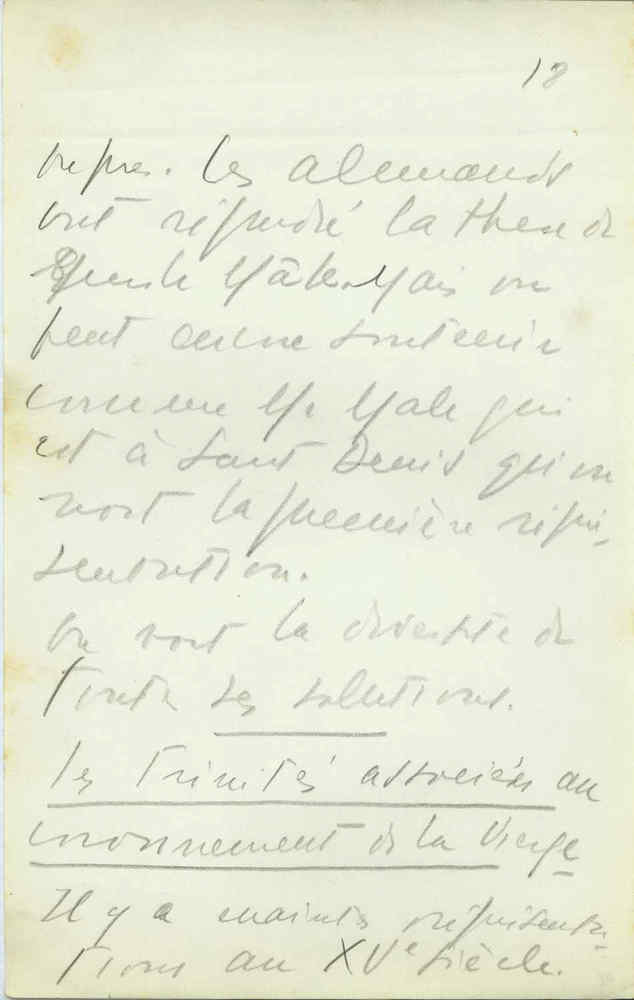 18
Les allemands
ont la these de
Mâle. Mais on
peut soutenir
comme Mr Male que
est à Saint Denis qu'on
voit la première repré-
sentation.
On voit la diversité de
toutes les solutions.
Les Trinités associées au
couronnement de la Vierge
Il y a maintes représenta-
tions au XVe siècle.